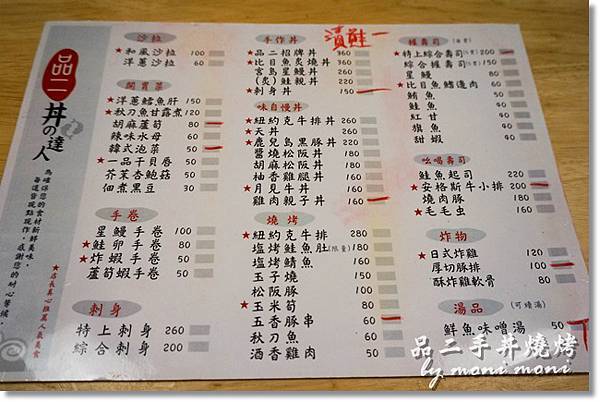 品二
丼の達人
為確保您的食材新鮮美味
每道皆現點現作，感謝您的耐心等候。
★店長真心推薦人氣美食
沙拉
★和風沙拉 100
洋蔥沙拉 60
開胃菜
★洋蔥鱈魚肝 150
★秋刀魚甘露煮 120
胡麻蘆筍 80
辣味水母 60
韓式泡菜 50
★一品干貝唇 50
芥茉杏鮑菇 50
佃煮黑豆 30
手卷
星鰻手卷 100
★鮭卵手卷 80
★炸蝦手卷 60
蘆筍蝦手卷 50
刺身
特上刺身 260
綜合刺身 200
手作丼
漬鮭一
★品二招牌丼 360
★比目魚炙燒丼 360
宮島星鰻丼
(炙)鮭親丼
★刺身丼
味自慢丼
★紐約克牛排丼 320
★天丼
★鹿兒島黑豚丼
醬燒松阪丼 180
胡麻松阪丼 180
柚香雞腿丼 160
★月見牛丼 160
雞肉親子丼 160
燒烤
★紐約克牛排 280
★塩烤鮭魚肚(限量) 180
塩烤鯖魚 160
玉子燒 150
松阪豚 150
★玉米筍 80
五香豚串 60
秋刀魚 50
酒香雞肉 50
握壽司
★特上綜合壽司 200
綜合握壽司 160
星鰻 80
★比目魚鰭邊肉 60
鮪魚 50
鮭魚 40
紅甘 40
旗魚 40
甜蝦 40
吆喝壽司
鮭魚起司 220
★安格斯牛小排 200
燒肉豚 150
★毛毛虫 160
炸物
★日式炸雞 120
★厚切豚排 100
酥炸雞軟骨 80
湯品 (可續湯)
鮮魚味噌湯 50
品二手丼燒烤
by moni moni